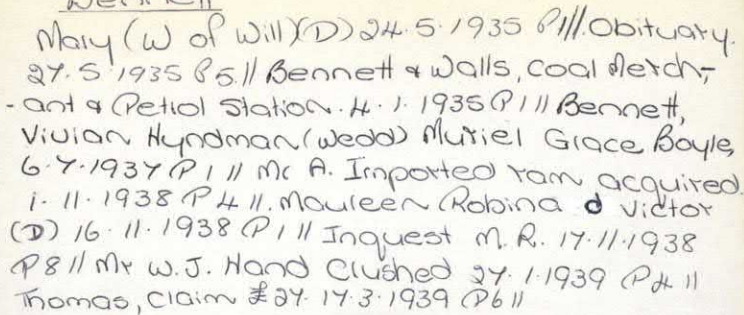 Mary (W of Will)(D) 24.5.1935 P1//. Obituary.
27.5.1935 P5.// Bennett & Walls, Coal Merch-
-ant & Petrol Station. 4.1.1935 P1 // Bennett,
Vivian Hyndman (wedd) Muriel Grace Boyle,
6.7.1937 P1 // Mc A. Imported ram acquired.
1.11.1938 P4 //. Maureen Robina d Victor
(D) 16.11.1938 P1 // Inquest M.R. 17.11.1938
P8 // Mr W.J. Hand Crushed 27.1.1939 P4 //
Thomas, Claim £27. 17.3.1939 P6 //